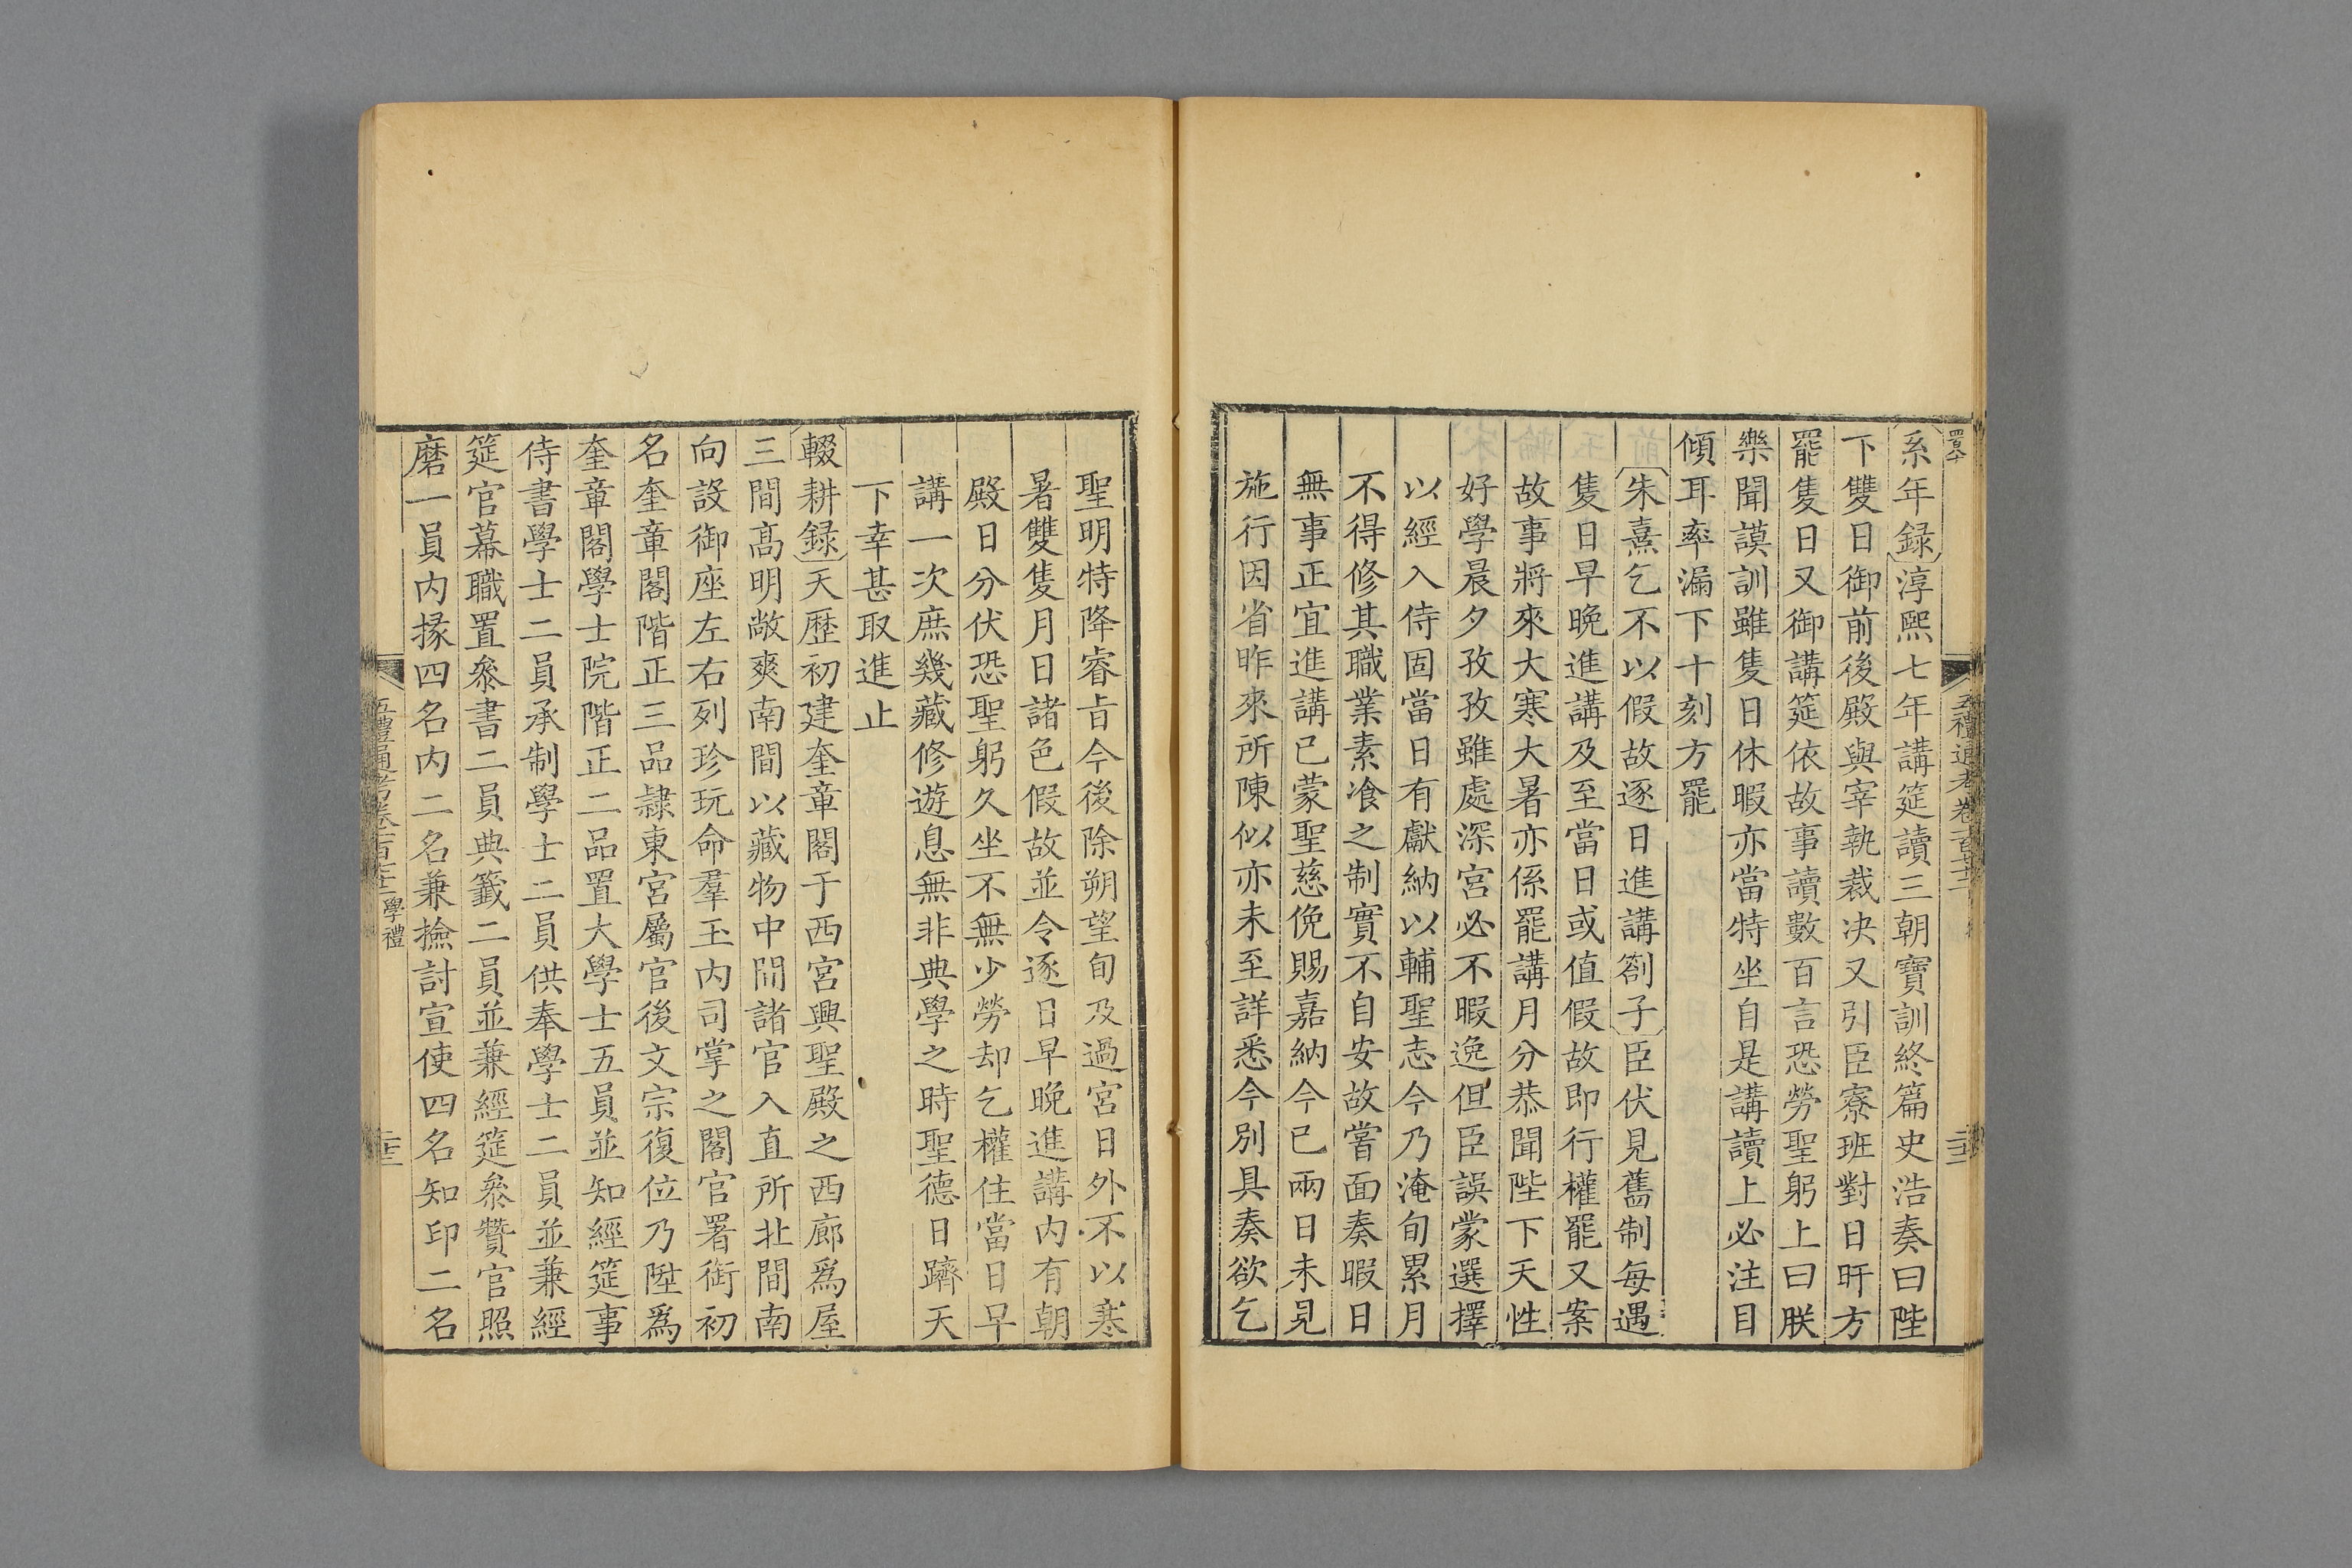 系年録淳熙七年講筵讀三朝寶訓終篇史浩奏曰陛
下雙日御前後殿與宰執裁决又引臣寮班對日旰方
罷隻日又御講筵依故事讀數百言恐勞聖躬上曰朕
樂聞謨訓雖隻日休暇亦當特坐自是講讀上必注目
傾耳率漏下十刻方罷
朱熹乞不以假故逐日進講劄子臣伏見舊制每遇
隻日早晩進講及至當日或值假故即行權罷又案
故事將來大寒大暑亦係罷講月分恭聞陛下天性
好學晨夕孜孜雖處深宮必不暇逸但臣誤蒙選擇
以經入侍固當日有獻納以輔聖志今乃淹旬累月
不得修其職業素飡之制實不自安故嘗面奏暇日
無事正宜進講已蒙聖慈俛賜嘉納今已兩日未見
施行因省昨來所陳似亦未至詳悉今別具奏欲乞
聖明特降睿旨今後除朔望旬及過宮日外不以寒
暑雙隻月日諸色假故並令逐日早晩進講内有朝
殿日分伏恐聖躬久坐不無少勞却乞權住當日早
講一次庶幾藏修遊息無非典學之時聖德日躋天
下幸甚取進止
輟耕録天歷初建奎章閣于西宮興聖殿之西廊爲屋
三間髙明敞爽南間以藏物中間諸官入直所北間南
向設御座左右列珍玩命羣玉内司掌之閣官署銜初
名奎章閣階正三品隷東宮屬官後文宗復位乃陞爲
奎章閣學士院階正二品置大學士五員並知經筵事
侍書學士二員承制學士二員供奉學士二員並兼經
筵官幕職置叅書二員典籤二員並兼經筵叅贊官照
磨一員内掾四名内二名兼撿討宣使四名知印二名
五禮通考卷一百七十二 學禮